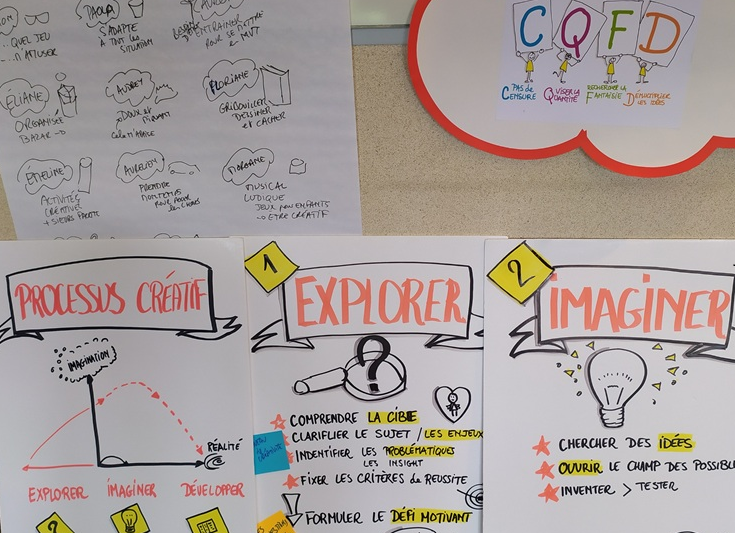 ... QUEL JEU
... M'AMUSER
PAOLA
S'ADAPTE
A TNT LA
SITUATION
D'ENTRAINER
POUR SE METTRE
ÉLIANE
ORGANISÉE
BAZAR
AUDREY
DOUX et
Cela m'APAISE
FLORIANE
GRIBOUILLER
DESSINER
et CACHER
ÉMELINE
ACTIVITÉ
CRÉATIVE
AURELIEN
PRENDRE
MON TEMPS
POUR
MORGANE
MUSICAL
LUDIQUE
JEUX pour ENFANTS
ETRE CRÉATIF
C Q F D
PAS DE CENSURE
VISER LA QUANTITÉ
RECHERCHER LA FANTAISIE
DÉMULTIPLIER LES IDÉES
PROCESSUS CRÉATIF
IMAGINATION
RÉALITÉ
EXPLORER IMAGINER DÉVELOPPER
?
1
EXPLORER
?
COMPRENDRE LA CIBLE
CLARIFLIER LE SUJET / LES ENJEUX
INDENTIFIER LES PROBLÉMATIQUES
LES INSIGHT
FIXER LES CRITÈRES de REUSSITE
FORMULER LE DÉFI MOTIVANT
2
IMAGINER
CHERCHER DES IDÉES
OUVRIR LE CHAMP DES POSSIBLE
INVENTER > TESTER